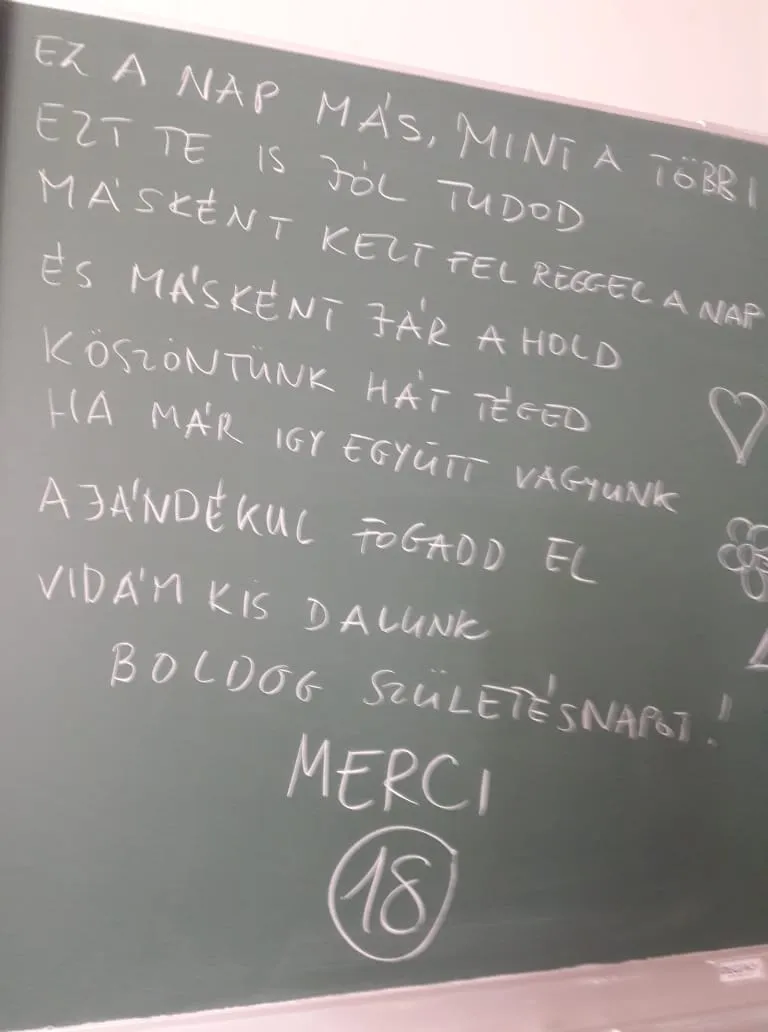 EZ A NAP MÁS, MINT A TÖBBI
EZT TE IS JÓL TUDOD
MÁSKÉNT KELT FEL REGGEL A NAP
ÉS MÁSKÉNT JÁR A HOLD
KÖSZÖNTÜNK HÁT TÉGED
HA MÁR IGY EGYÜTT VAGYUNK
AJÁNDÉKUL FOGADD EL
VIDÁM KIS DALUNK
BOLDOG SZÜLETÉSNAPOT!
MERCI
18